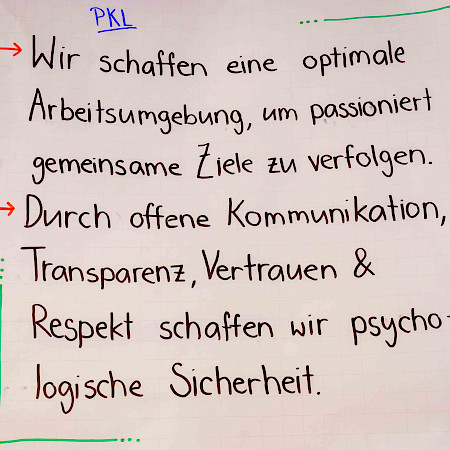 PKL
→ Wir schaffen eine optimale
Arbeitsumgebung, um passioniert
gemeinsame Ziele zu verfolgen.
→ Durch offene Kommunikation,
Transparenz, Vertrauen &
Respekt schaffen wir psycho-
logische Sicherheit.